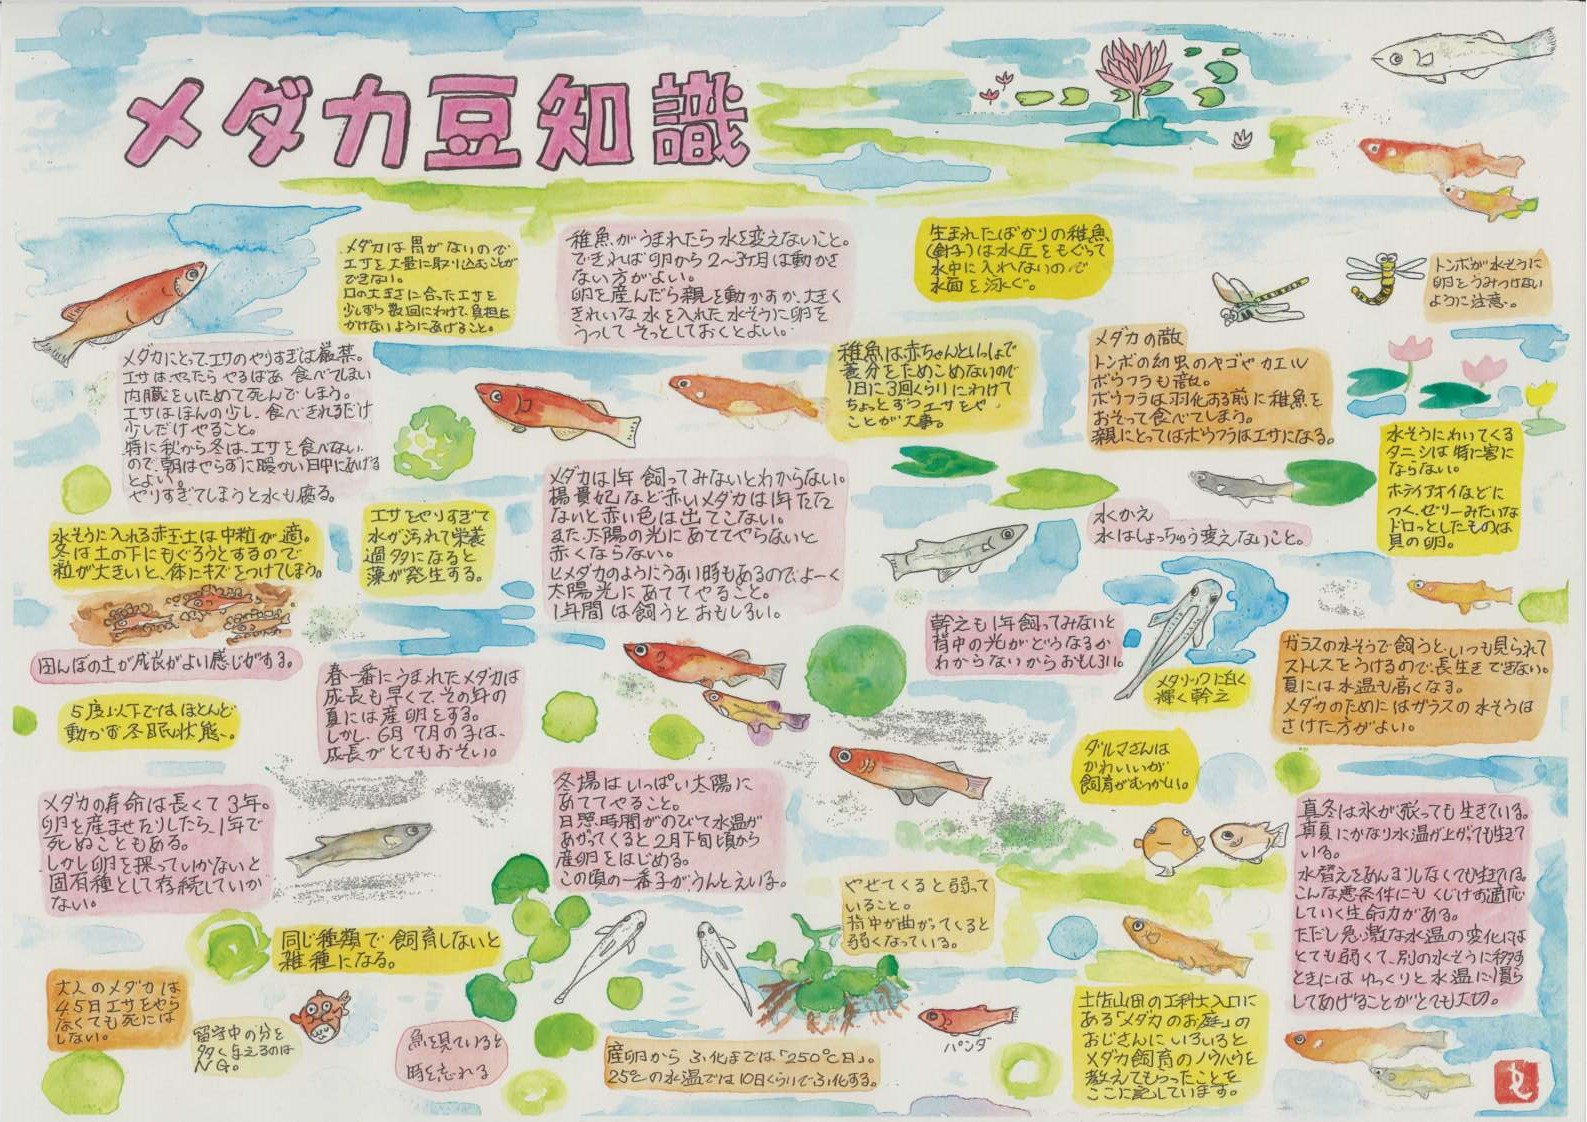 メダカ豆知識
メダカは胃がないので
エサを大量に取り込むことが
できない。
口の大きさに合ったエサを
少しずつ数回にわけて、負担を
かけないようにあげること。
稚魚がうまれたら水を変えないこと。
できれば卵から2〜3ヶ月は動かさ
ない方がよい。
卵を産んだら親を動かすか、大きく
きれいな水を入れた水そうに卵を
うつしてそっとしておくとよい。
生まれたばかりの稚魚
(針子)は水圧をもぐって
水中に入れないので
水面を泳ぐ。
トンボが水そうに
卵をうみつけない
ように注意。
メダカにとってエサのやりすぎは厳禁。
エサはやったらやるばあ食べてしまい
内臓をいためて死んでしまう。
エサはほんの少し、食べきれるだけ
少しだけやること。
特に秋から冬は、エサを食べない
ので、朝はやらずに暖かい日中にあげる
とよい。
やりすぎてしまうと水も腐る。
稚魚は赤ちゃんといっしょで
養分をためこめないので
1日に3回くらいにわけて
ちょっとずつエサをや
ことが大事。
メダカの敵
トンボの幼虫のヤゴやカエル
ボウフラも敵。
ボウフラは羽化する前に稚魚を
おそって食べてしまう。
親にとってはボウフラはエサになる。
水そうにわいてくる
タニシは特に害に
ならない。
ホテイアオイなどに
つく、ゼリーみたいな
ドロっとしたものは
貝の卵。
水そうに入れる赤玉土は中粒が適。
冬は土の下にもぐろうとするので
粒が大きいと、体にキズをつけてしまう。
エサをやりすぎて
水が汚れて栄養
過多になると
藻が発生する。
メダカは1年飼ってみないとわからない。
楊貴妃など赤いメダカは1年たた
ないと赤い色は出てこない。
また、太陽の光にあててやらないと
赤くならない。
ヒメダカのようにうすい時もあるので、よーく
太陽光にあててやること。
1年間は飼うとおもしろい。
水かえ
水はしょっちゅう変えないこと。
田んぼの土が成長がよい感じがする。
幹之も1年飼ってみないと
背中の光がどうなるか
わからないからおもしろい。
メタリックに白く
輝く幹之
ガラスの水そうで飼うと、いつも見られて
ストレスをうけるので、長生きできない。
夏には水温も高くなる。
メダカのためにはガラスの水そうは
さけた方がよい。
5度以下では、ほとんど
動かず冬眠状態、。
春一番にうまれたメダカは
成長も早くて、その年の
夏には産卵をする。
しかし、6月7月の子は、
成長がとてもおそい。
ダルマさんは
かわいいが
飼育がむつかしい。
メダカの寿命は長くて3年。
卵を産ませたりしたら、1年で
死ぬこともある。
しかし卵を採っていかないと
固有種として存続していか
ない。
冬場はいっぱい太陽に
あててやること。
日照時間がのびて水温が
あがってくると2月下旬頃から
産卵をはじめる。
この頃の一番子が、うんとえい子。
真冬は氷が張っても生きている。
真夏にかなり水温が上がっても生きて
いる。
水替えをあんまりしなくても生きている。
こんな悪条件にもくじけず適応
していく生命力がある。
ただし急激な水温の変化には
とても弱くて、別の水そうに移す
ときにはゆっくりと水温に慣ら
してあげることがとても大切。
やせてくると弱って
いること。
背中が曲がってくると
弱くなっている。
同じ種類で飼育しないと
雑種になる。
大人のメダカは
4、5日エサをやら
なくても死には
しない。
留守中の分を
多く与えるのは
NG。
魚を見ていると
時を忘れる
産卵からふ化までは「250℃日」。
25℃の水温では10日くらいでふ化する。
パンダ
土佐山田の工科大入口に
ある「メダカのお庭」の
おじさんにいろいろと
メダカ飼育のノウハウを
教えてもらったことを
ここに記しています。